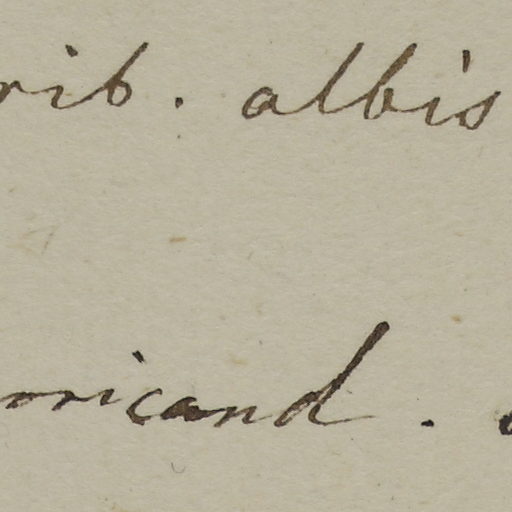 rib. albis
oricand.